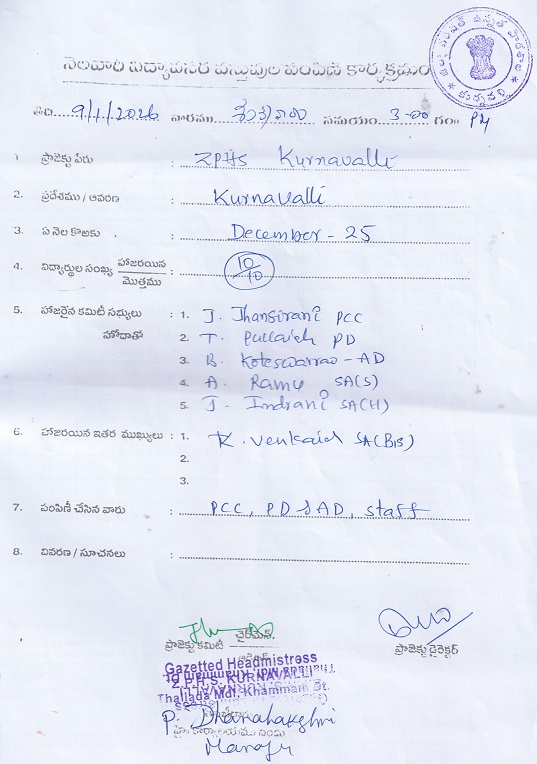 నెలవారి విద్యావసర వస్తువుల పంపిణి కార్యక్రమం
తేది 9/1/2026 వారము శుక్రవారం సమయం 3-00 గం॥ PM
1 ప్రాజెక్టు పేరు : ZPHS Kurnavalli
2. ప్రదేశము / ఆవరణ : Kurnavalli
3. ఏ నెల కొఱకు : December - 25
4. విద్యార్థుల సంఖ్య హాజరయిన / మొత్తము : 10/10
5. హాజరైన కమిటీ సభ్యులు : 1. J. Jhansirani PCC
హోదాతో 2. T. Pullaiah PD
3. B. Koteswarrao - AD
4. A. Ramu SA(S)
5. J. Indrani SA(H)
6. హాజరయిన ఇతర ముఖ్యులు : 1. K. Venkaiah SA(BIS)
2.
3.
7. పంపిణీ చేసిన వారు : PCC, PD & AD, staff
8. వివరణ / సూచనలు :
ప్రాజెక్టు కమిటీ చైర్‌మెన్.
ప్రాజెక్టు డైరెక్టర్
Gazetted Headmistress
Z.P.H.S. KURNAVALLI
Thallada Mdl, Khammam Dt.
P. Dhanalakshmi
Manager